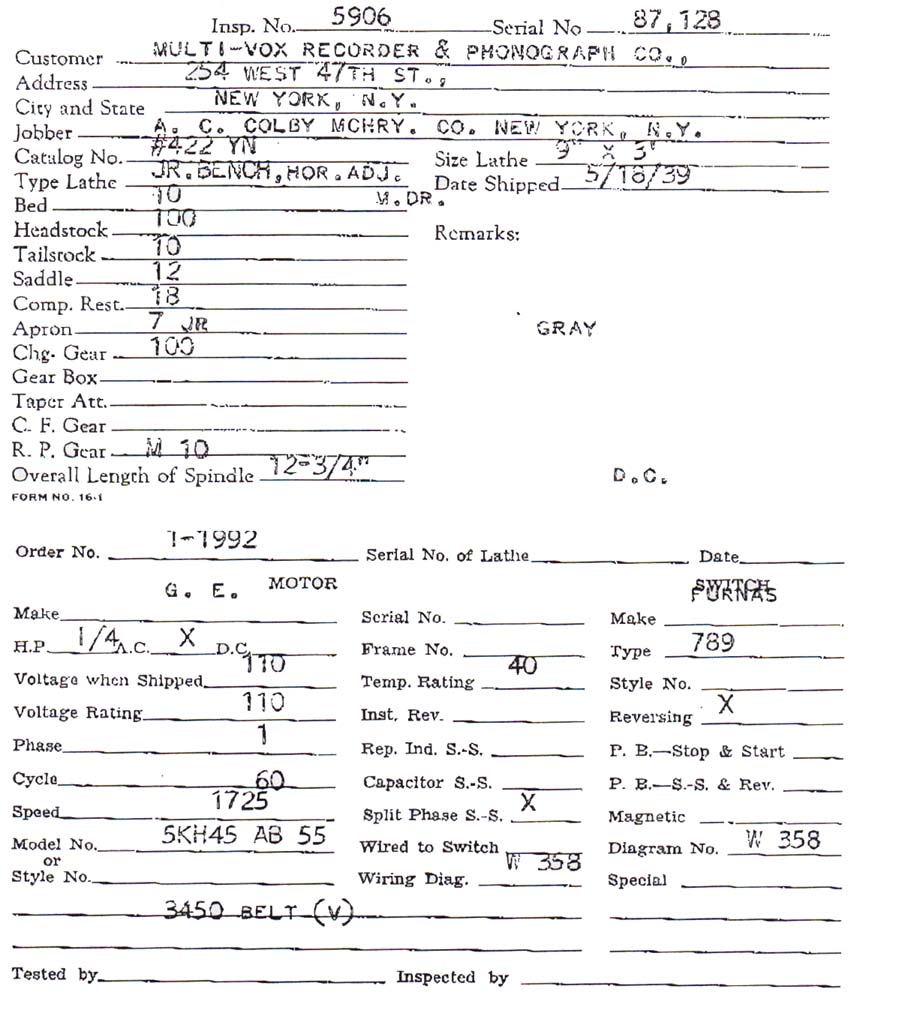 Insp. No. 5906 Serial No 87,128
Customer MULTI-VOX RECORDER & PHONOGRAPH CO.,
Address 254 WEST 47TH ST.,
City and State NEW YORK, N.Y.
Jobber A. C. COLBY MCHRY. CO. NEW YORK, N.Y.
Catalog No. #422 YN Size Lathe 9" X 3'
Type Lathe JR.BENCH,HOR.ADJ. Date Shipped 5/18/39
Bed 10 M.DR.
Headstock 100 Remarks:
Tailstock 10
Saddle 12
Comp. Rest. 18
Apron 7 JR GRAY
Chg. Gear 100
Gear Box
Taper Att.
C. F. Gear
R. P. Gear M 10
Overall Length of Spindle 12-3/4" D.C.
FORM NO. 16-1
Order No. 1-1992 Serial No. of Lathe Date
G. E. MOTOR SWITCH
FURNAS
Make Serial No. Make
H.P. 1/4 A.C. X D.C. Frame No. Type 789
Voltage when Shipped 110 Temp. Rating 40 Style No.
Voltage Rating 110 Inst. Rev. Reversing X
Phase 1 Rep. Ind. S.-S. P. B.—Stop & Start
Cycle 60 Capacitor S.-S. P. B.—S.-S. & Rev.
Speed 1725 Split Phase S.-S. X Magnetic
Model No. 5KH45 AB 55 Wired to Switch Diagram No. W 358
or
Style No. Wiring Diag. W 358 Special
3450 BELT (V)
Tested by Inspected by